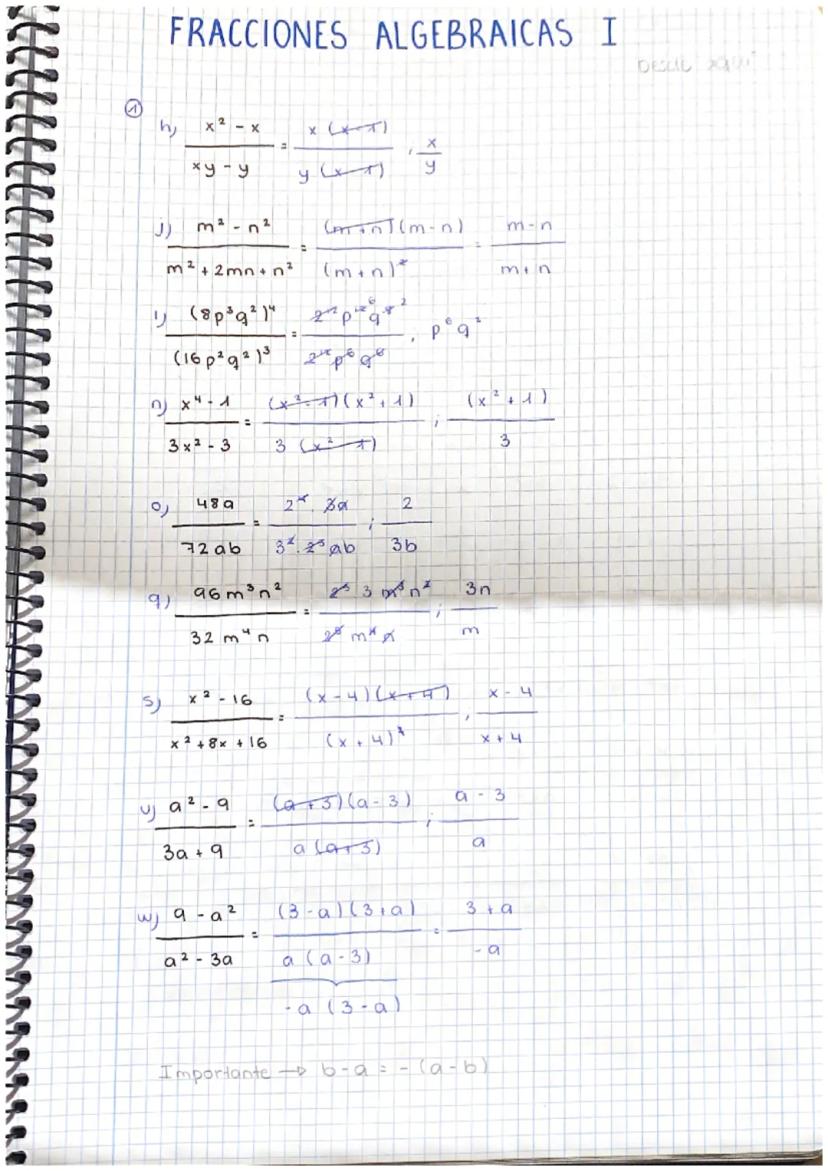 FRACCIONES ALGEBRAICAS I
DESDE AQUÍ
①
h) (x² - x)/(xy - y) = (x (x-1))/(y (x-1)) , x/y
j) (m² - n²)/(m² + 2mn + n²) = ((m+n)(m-n))/((m+n)²) = (m-n)/(m+n)
(8p³q²)⁴/(16p²q²)³ = (2¹²p¹²q⁸)/(2¹²p⁶q⁶) , p⁶q²
n) (x⁴ - 1)/(3x² - 3) = ((x²-1)(x²+1))/(3 (x²-1)) ; (x² + 1)/3
o) 48a/72ab = (2⁴ · 3a)/(3² · 2³ ab) ; 2/3b
q) 96m³n²/32m⁴n = (2⁵ 3 m³n²)/(2⁵ m⁴ n) ; 3n/m
s) (x² - 16)/(x² + 8x + 16) = ((x-4)(x+4))/((x+4)²) , (x - 4)/(x + 4)
u) (a² - 9)/(3a + 9) = ((a+3)(a-3))/(a (a+3)) ; (a - 3)/a
w) (9 - a²)/(a² - 3a) = ((3-a)(3+a))/(a (a-3)) = (3 + a)/(-a)
-a (3-a)
Importante → b-a = -(a-b)